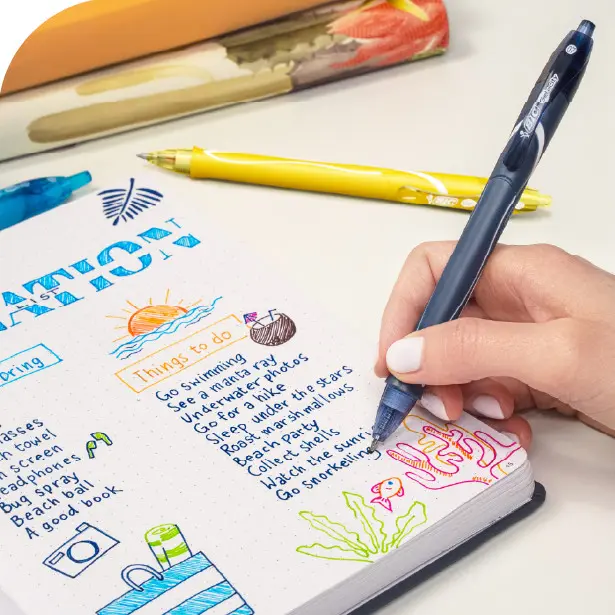 BIC
BIC
ATION
ST
ring
Things to do
Go swimming
See a manta ray
Underwater photos
Go for a hike
Sleep under the stars
Roast marshmallows
Beach Party
Collect shells
Watch the sunri
Go snorkeling
lasses
h towel
n screen
eadphones
Bug spray
Beach ball
A good book